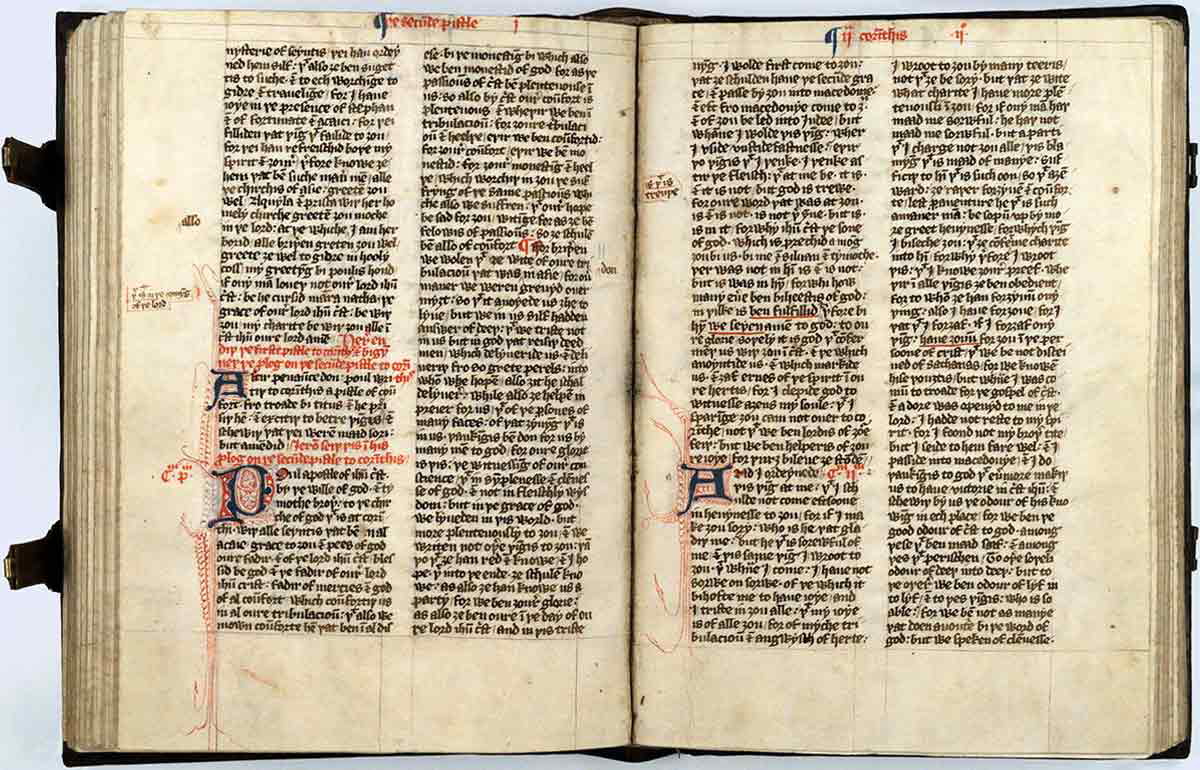 ye secunde pistle i
mysterie of seyntis yei han ordey
ned hem silf: yt also ȝe ben suget
tis to suche: & to ech worchinge to
gidre & traueilige: for I haue
ioye in ye presence of stephan
& of fortunate & acaici: for yei
filliden yat yig yt failide to ȝou:
for yei han refreishid boye my
spirit & ȝour: yfore knowe ȝe
hem yt be suche man me: alle
ye chirchis of asie: greete ȝou
wel: Aquyla & prisca wiy her ho
mely chirche greete ȝou moche
in ye lord: at ye whiche, I am her
borid: alle briyen greten ȝou wel:
greete ȝe wel to gidre in hooly
coss: my greetyg bi poulis hond
if ony ma loueȝ not our lord ihu
cst: be he cursid mara natha: ye
grace of our lord ihu cst: be wiy
ȝou: my charite be wiy ȝou alle i
cst ihu oure lord ame
Her en
diy ye firste pistle to corinthis & bigyn
ney ye plog on ye secunde pistle to corin
this
After penaunce don poul wri
tiy to corinthis a pistle of con
fort: fro troade bi titus: & he prei
siy he: & excitiy to bettre yigis: &
shewiy yat yei weren mad sori:
but amedid:
Jero seiy yis i his
plog on ye secunde pistle to corinthis
Cm pm
Poul apostle of ihu cst:
by ye wille of god: & ty
mothe broy: to ye chir
che of god yt is at cori
thi: wiy alle seyntis yat be i al
acaie: grace to ȝou: & pees of god
oure fadir: & of ye lord ihu cst: bles
sid be god: & ye fadir of our lord
ihu crist: fadir of mercies: & god
of al confort: which confortiy us
in al oure tribulaciou: yt also we
mown conforte he yat ben i al dis
allso
yt is in ye comyng
of ye lord
ese: bi ye monestig bi which also
we ben monestid of god: for as ye
passions of cst be plenteuouse i
us: so also by cst our confort is
plenteuous: & wheyir we ben i
tribulaciou: for ȝoure tribulaci
ou & heelye: eyir we ben confortid:
for ȝour confort: eyir we be mo
nestid: for ȝour monestig & heel
ye: which worchiy in ȝou ye suf
fryng of ye same passions: whi
che also we suffren: yt our hope
be sad for ȝou: witige for as ȝe be
felowis of passions: so ȝe schule
be also of confort for briyen
we wolen yt ȝe wite of oure tri
bulaciou yat was i asie: for ou
maner we weren greuyd ouer
myȝt: so yt it anoyede us ȝhe to
lyue: but we in us silf hadden
answer of deey: yt we triste not
in us: but in god yat reisiy deed
men: which delyueride us: & deli
ueriy fro so grete perels: into
who we hope: also ȝit he schal
delyuer: while also ȝe helpe in
preier for us: yt of ye psones of
many faces: of yat ȝyuyg yt is
in us: yankigis be don for us by
many me to god: for oure glorie
is yis: ye witnessig of our con
science: yt in symplenesse & clenes
se of god: & not in fleishly wys
dom: but in ye grace of god:
we lyueden in yis world: but
more plenteuously to ȝou: & we
written not oye yigis to ȝou: yan
yo yt ȝe han red & knowe: & I ho
pe: yt into ye ende: ȝe schule kno
we: as also ȝe han knowe us a
party: for we ben ȝoure glorie:
as also ȝe ben oure i ye day of ou
re lord ihu cst: and in yis triste
don
ii corinthis ii
nyg: I wolde first come to ȝou:
yat ȝe schulden haue ye secunde gra
ce: & passe by ȝou into macedonie:
& eft fro macedonye come to ȝ:
& of ȝou be led into iudee: but
whane I wolde yis yig: wher
I vside vnstidefastnesse: eyir
yo yigis yt I yenke: I yenke as
tir ye fleish: yt at me be: it is:
& it is not: but god is trewe:
for oure word yat was at ȝou:
is & is not: is not i yt sue: but is:
is in it: forwhy ihu cst ye sone
of god: which is prechid amog
ȝou bi us: bi me & siluan & tymothe:
yer was not in hi is & is not:
but is was in hi: for whi how
many eue ben biheestis of god:
in yilke is ben fulfillid: yfore bi
hi we seyen amen to god: to ou
re glorie: soyely it is god yt cofer
mey us wiy ȝou i cst: & ye which
anoyntide us: & which markide
us: & ȝaf ernes of ye spirit i ou
re hertis: for I clepide god to
witnesse aȝens my soule: yt I
sparige ȝou cam not ouer to co
rithe: not yt we ben lordis of ȝou
feiy: but we ben helperis of ȝou
re ioye: for yruȝ bileue ȝe stonde
Cm iim
And I ordeynede
yis yig at me: yt I sch
ulde not come eftsoone
in heuynesse to ȝou: for if I ma
ke ȝou sory: who is he yat gla
diy me: but he yt is sorewful of
me: & yis same yig I wroot to
ȝou: yt whane I come: I haue not
sorwe on sorwe: of ye which it
bihofte me to haue ioye: and
I triste in ȝou alle: yt my ioye
is of alle ȝou: for of myche tri
bulaciou & angwysch of herte:
it yt is
treuye
I wroot to ȝou by many teeris:
not yt ȝe be sory: but yat ȝe wite
what charite I haue more ple
teuousli i ȝou: for if ony ma hay
maad me sorwful: he hay not
maad me sorwful: but a parti:
yt I charge not ȝou alle: yis bla
myg yt is maad of manye: suf
ficiy to hi yt is such oon: so yt aȝen
ward: ȝe raþer forȝyue & confor
te: lest paventure he yt is such
a maner ma: be sopu up by mo
re greet heuynesse: for which yig
I biseche ȝou: yt ȝe coferme charite
into hi: forwhy yfore I wroot
yis: yt I knowe ȝour preef: whe
yir i alle yigis ȝe ben obedient:
for to who ȝe han forȝyuu ony
yig: also I haue forȝoue: for I
yat yt I forȝaf: if I forȝaf ony
yig: haue ȝouu for ȝou i ye per
soone of crist: yt we be not disei
ued of sathanas: for we knowen
hise youȝtis: but whane I was co
me to troade for ye gospel of cst:
& a dore was openyd to me in ye
lord: I hadde not reste to my spi
rit: for I fond not my broy tite:
but I seide to hem fare wel: & I
passide into macedonie: & I do
yankigis to god yt euemore makiy
us to haue victorie in cst ihu: &
shewiy by us ye odour of his kno
wig in ech place: for we ben ye
good odour of cst to god: among
yese yt ben maad saaf: & among
yese yt perischen: to oye soyeli
odour of deey into deey: but to
ye oyere: we ben odour of lyf in
to lyf: & to yes yigis: who is so
able: for we be not as manye
yat doen auoutrie bi ye word of
god: but we speken of clennesse: